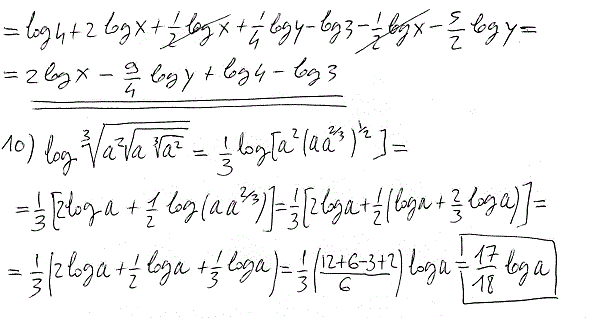 = log 4 + 2 log x + 1/2 log x + 1/4 log y - log 3 - 1/2 log x - 5/2 log y =
= 2 log x - 9/4 log y + log 4 - log 3
10) log ∛(a²√(a ∛(a²))) = 1/3 log [a² (a a^(2/3))^(1/2)] =
= 1/3 [2 log a + 1/2 log (a a^(2/3))] = 1/3 [2 log a + 1/2 (log a + 2/3 log a)] =
= 1/3 (2 log a + 1/2 log a + 1/3 log a) = 1/3 ((12+6-3+2)/6) log a = 17/18 log a